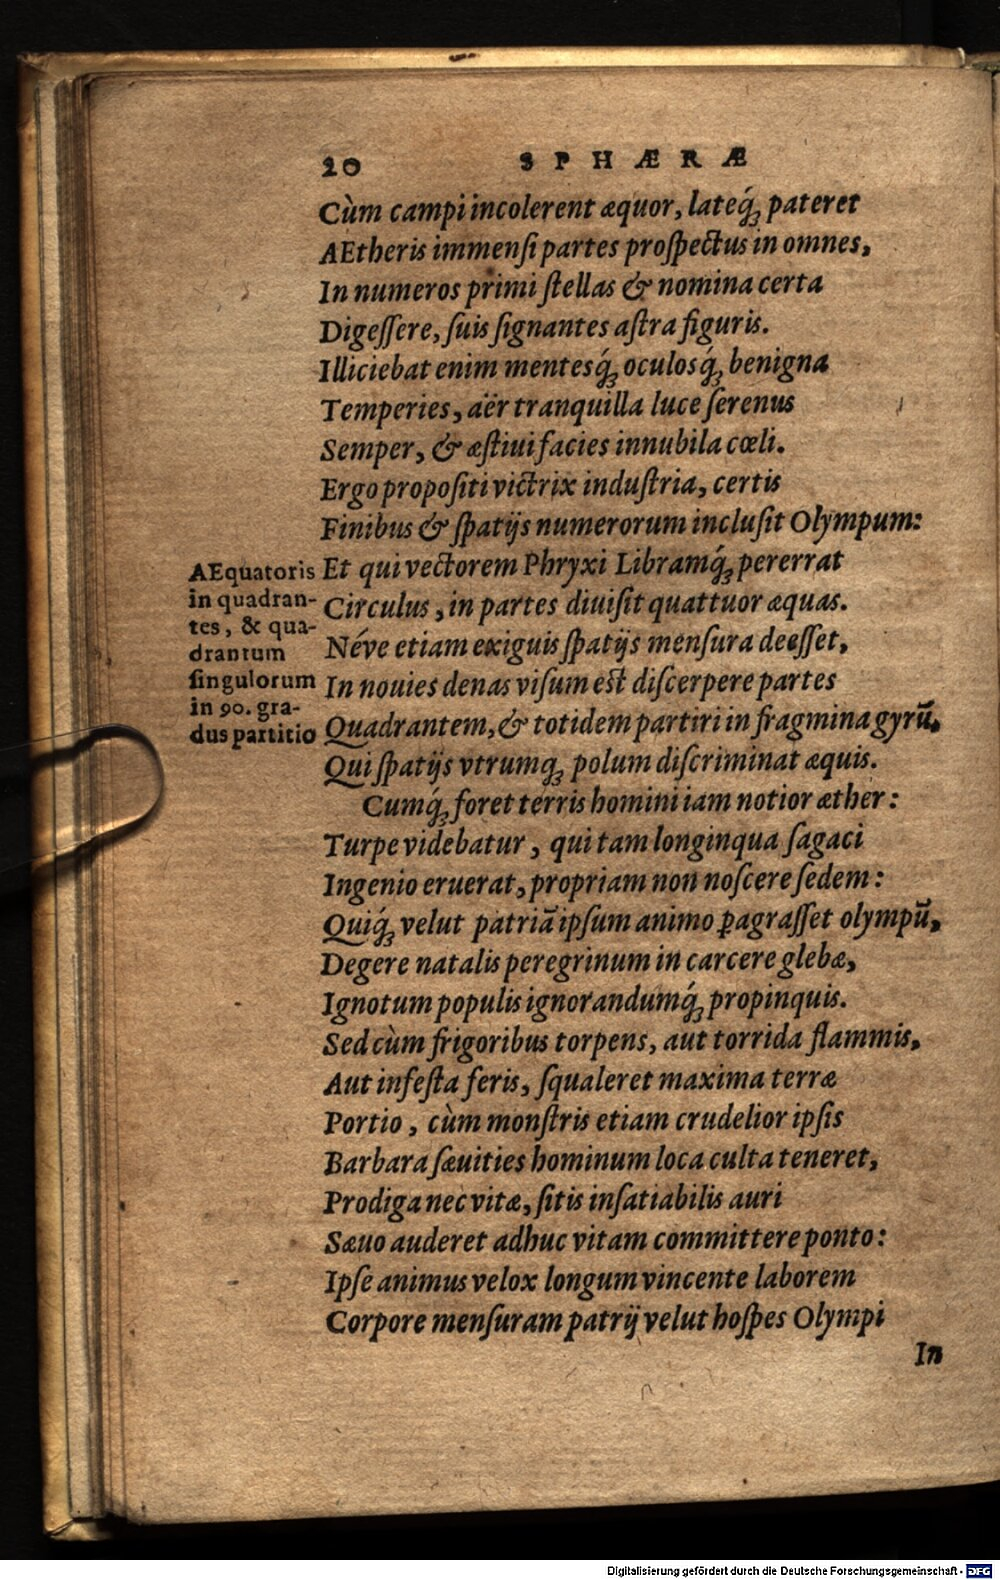 20 SPHÆRÆ
Cùm campi incolerent æquor, lateq́ꝫ pateret
AEtheris immenſi partes proſpectus in omnes,
In numeros primi ſtellas & nomina certa
Digeſſere, ſuis ſignantes aſtra figuris.
Illiciebat enim mentesq́ꝫ oculosq́ꝫ benigna
Temperies, aër tranquilla luce ſerenus
Semper, & æſtiui facies innubila cœli.
Ergo propoſiti victrix induſtria, certis
Finibus & ſpatijs numerorum incluſit Olympum:
Et qui vectorem Phryxi Libramq́ꝫ pererrat
Circulus, in partes diuiſit quattuor æquas.
Néve etiam exiguis ſpatijs menſura deeſſet,
In nouies denas viſum est diſcerpere partes
Quadrantem, & totidem partiri in fragmina gyrū,
Qui ſpatijs vtrumqꝫ polum diſcriminat æquis.
Cumq́ꝫ foret terris homini iam notior æther:
Turpe videbatur, qui tam longinqua ſagaci
Ingenio eruerat, propriam non noſcere ſedem:
Quiq́ꝫ velut patriā ipſum animo ꝑagraſſet olympū,
Degere natalis peregrinum in carcere glebæ,
Ignotum populis ignorandumq́ꝫ propinquis.
Sed cùm frigoribus torpens, aut torrida flammis,
Aut infeſta feris, ſqualeret maxima terræ
Portio, cùm monſtris etiam crudelior ipſis
Barbara ſæuities hominum loca culta teneret,
Prodiga nec vitæ, ſitis inſatiabilis auri
Sæuo auderet adhuc vitam committere ponto:
Ipſe animus velox longum vincente laborem
Corpore menſuram patrij velut hoſpes Olympi
In
AEquatoris
in quadran-
tes, & qua-
drantum
ſingulorum
in 90. gra-
dus partitio
Digitalisierung gefördert durch die Deutsche Forschungsgemeinschaft - DFG